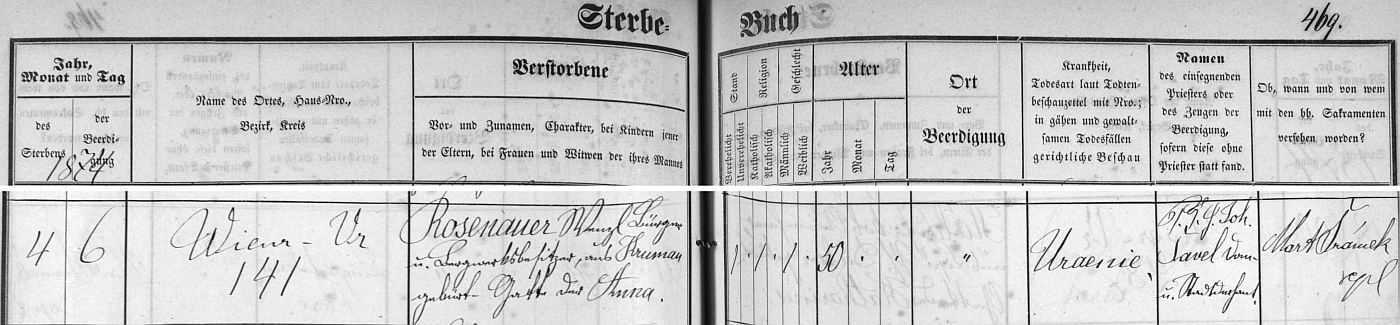 Sterbe-Buch
469.
Jahr, Monat und Tag
des Sterbens
der Beerdigung
1874
Name des Ortes, Haus-Nro., Bezirk, Kreis
Verstorbene
Vor- und Zunamen, Charakter, bei Kindern jener
der Eltern, bei Frauen und Witwen der ihres Mannes
Stand
Verehelicht
Unverehelicht
Religion
Katholisch
Akatholisch
Geschlecht
Männlich
Weiblich
Alter
Jahr
Monat
Tag
Ort
der
Beerdigung
Krankheit,
Todesart laut Todten-
beschauzettel mit Nro.;
in gähen und gewalt-
samen Todesfällen
gerichtliche Beschau
Namen
des einsegnenden
Priesters oder
des Zeugen der
Beerdigung,
sofern diese ohne
Priester statt fand.
Ob, wann und von wem
mit den hh. Sakramenten
versehen worden?
4 6
Wiener-
141
Rosenauer Wenzl Bürger
u. Bergwerksbesitzer, aus Kruman
gebürt. Gatte der Anna.
1 . 1 . 1 . 50 . .
"
Uraemie
Joh.
Pavel Dom-
u. Stadtdechant.
Mart Srámek